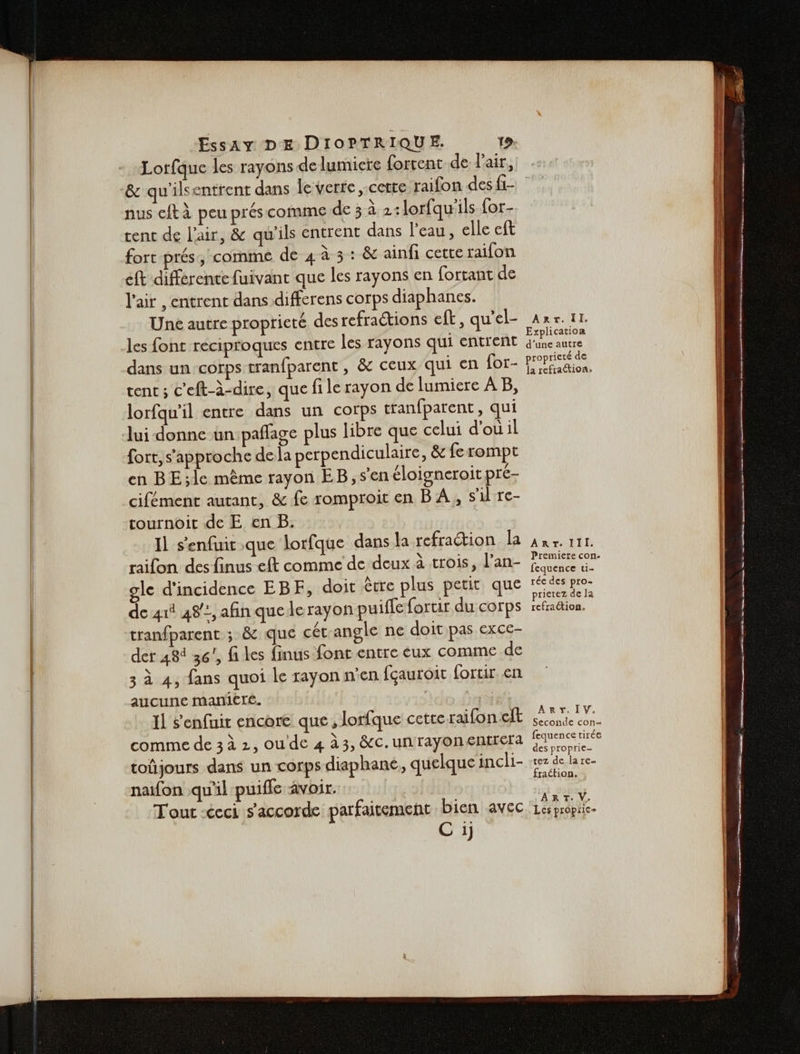 ESSAY DE DIOPTRIQUE. 19
Lorſque les rayons de lumiere ſortent de l'air,
& qu'ils entrent dans le verre, cette raiſon des ſi-
nus eſt à peu prés comme de 3 à 2 : lorſqu'ils ſor-
tent de l'air, & qu'ils entrent dans l'eau, elle eſt
fort prés, comme de 4 à 3 : & ainſi cette raiſon
eſt differente ſuivant que les rayons en ſortant de
l'air, entrent dans differens corps diaphanes.
Une autre proprieté des refractions eſt, qu'el-
les ſont reciproques entre les rayons qui entrent
dans un corps tranſparent, & ceux qui en ſor-
tent ; c'eſt-à-dire, que ſi le rayon de lumiere A B,
lorſqu'il entre dans un corps tranſparent, qui
lui donne un paſſage plus libre que celui d'où il
ſort, s'approche de la perpendiculaire, & ſe rompt
en BE ; le même rayon EB, s'en éloigneroit pré-
ciſément autant, & ſe romproit en BA, s'il re-
tournoit de E en B.
Il s'enſuit que lorſque dans la refraction la
raiſon des ſinus eſt comme de deux à trois, l'an-
gle d'incidence EBF, doit être plus petit que
de 41ᵈ 48'½, afin que le rayon puiſſe ſortir du corps
tranſparent ; & que cét angle ne doit pas exce-
der 48ᵈ 36', ſi les ſinus ſont entre eux comme de
3 à 4, ſans quoi le rayon n'en ſçauroit ſortir en
aucune maniere.
Il s'enſuit encore que, lorſque cette raiſon eſt
comme de 3 à 2, ou de 4 à 3, &c. un rayon entrera
toûjours dans un corps diaphane, quelque incli-
naiſon qu'il puiſſe avoir.
Tout ceci s'accorde parfaitement bien avec
C ij
ART. II.
Explication
d'une autre
proprieté de
la refraction.
ART. III.
Premiere con-
ſequence ti-
rée des pro-
prietez de la
refraction.
ART. IV.
Seconde con-
ſequence tirée
des proprie-
tez de la re-
fraction.
ART. V.
Les proprie-